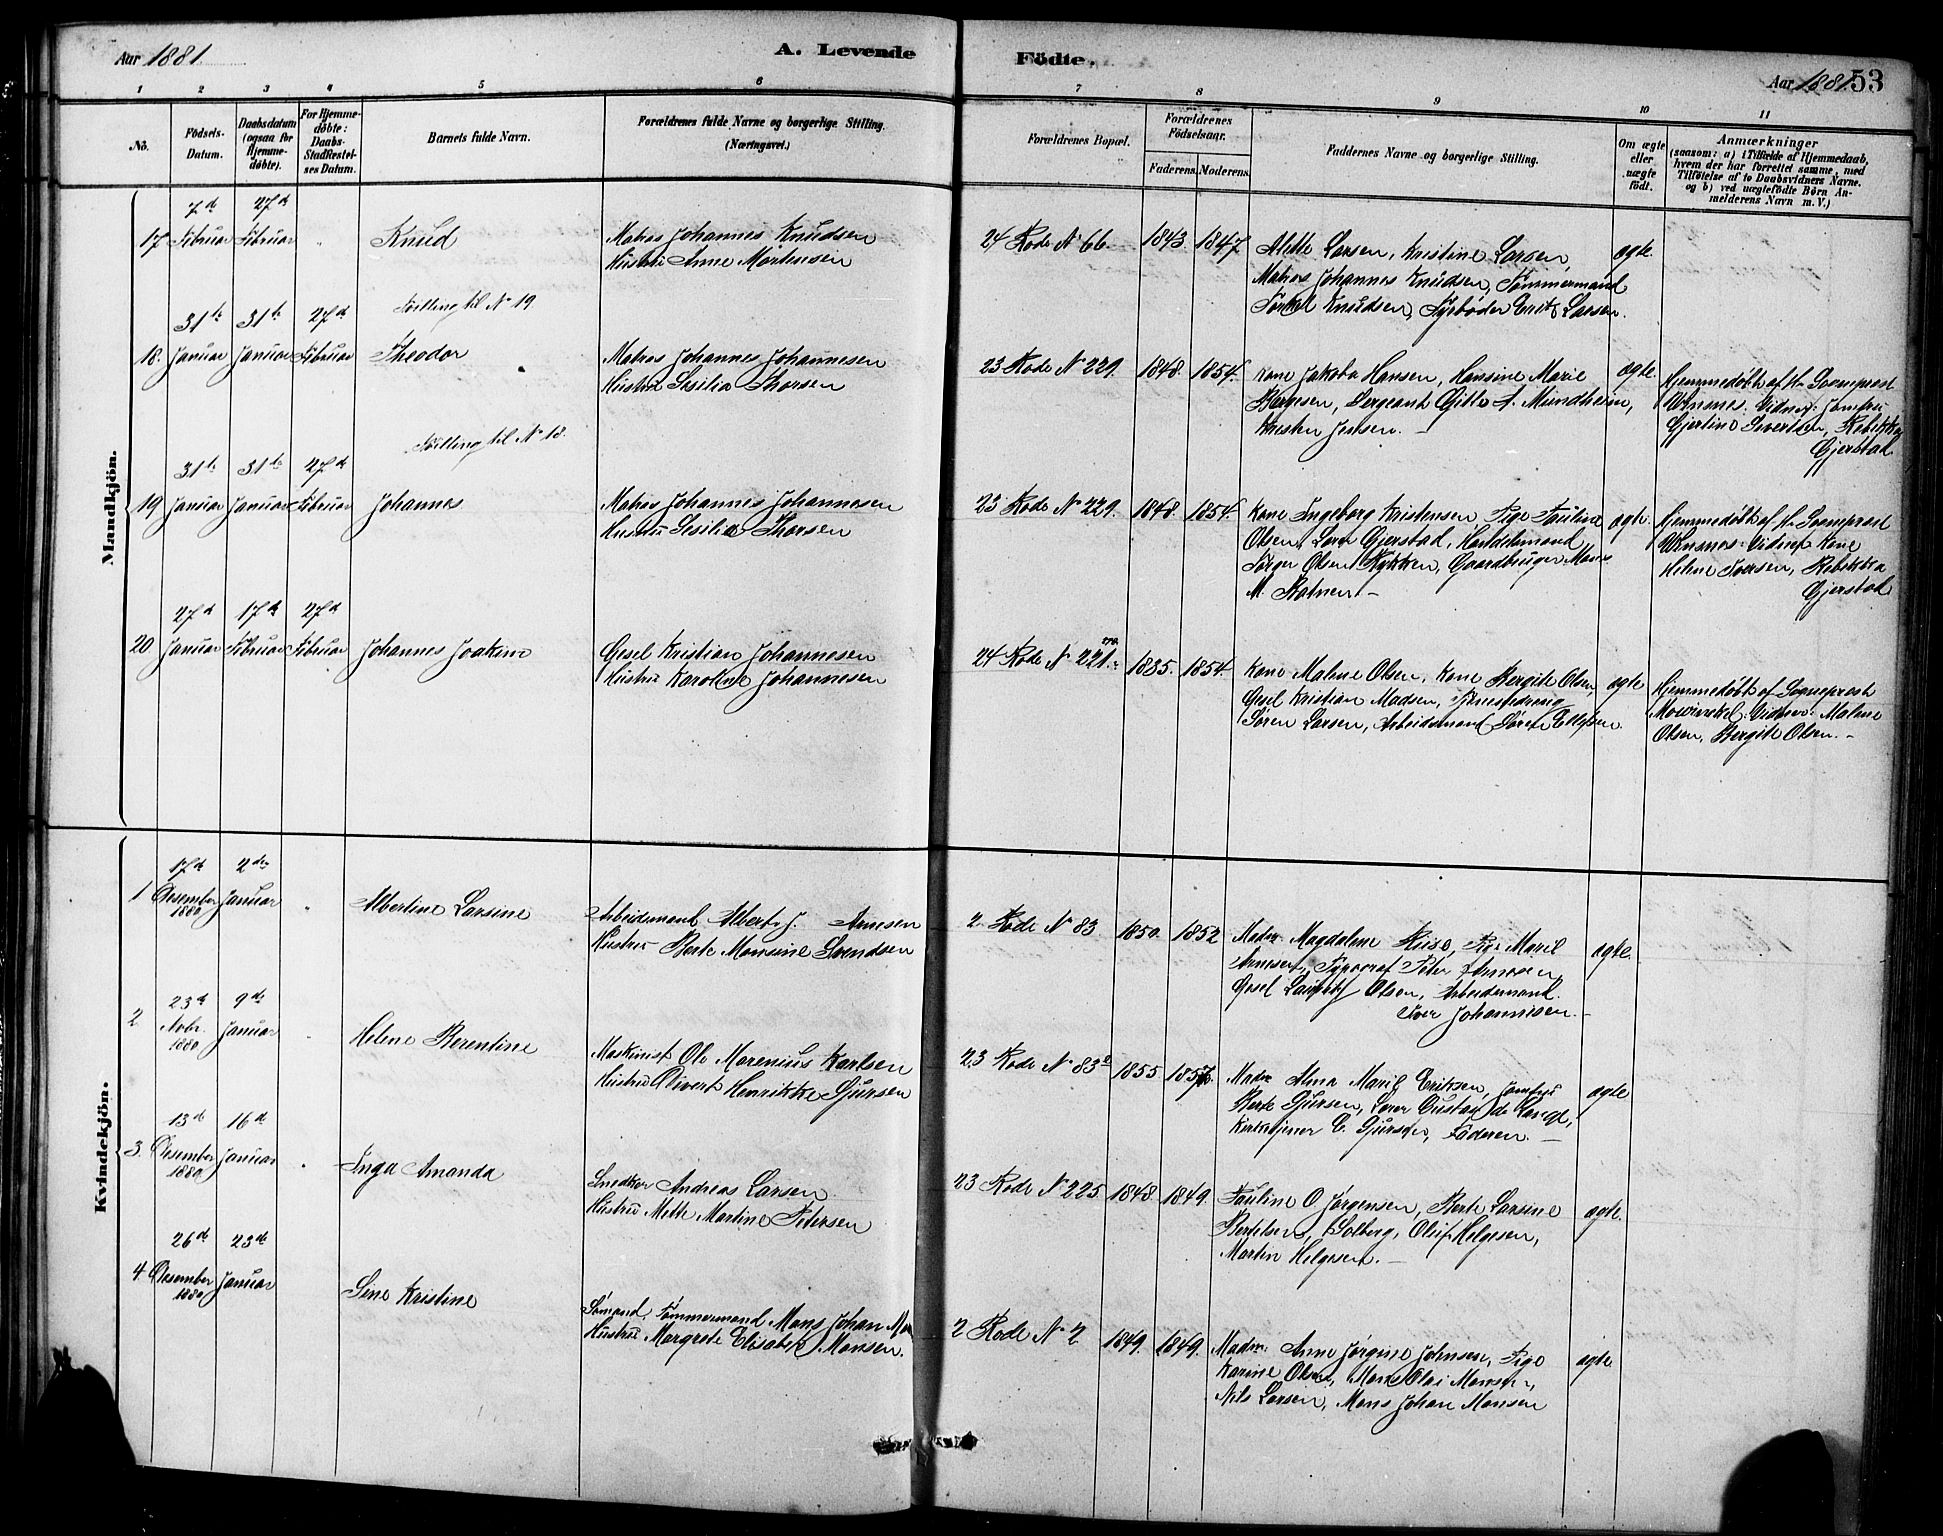 Aar 1881.
A. Levende
Födte.
Aar 1881. 53
1 2 3 4 5 6 7 8 9 10 11
No.
Födsels-Datum.
Daabsdatum (ogsaa for Hjemme-döbte).
For Hjemme-döbte: Daabs-Stadfestel-ses Datum.
Barnets fulde Navn.
Forældrenes fulde Navne og borgerlige Stilling.
(Næringsvei.)
Forældrenes Bopæl.
Forældrenes Födselsaar.
Faderens. Moderens.
Faddernes Navne og borgerlige Stilling.
Om ægte eller uægte födt.
Anmærkninger
(saasom: a) i Tilfælde af Hjemmedaab, hvem der har forrettet samme, med Tilföielse af to Daabsvidners Navne. og b) ved uægtefödte Börn An-melderens Navn m. V.)
Mandkjön.
7de 27de
17 Februar Februar " Knud
Matros Johannes Knudsen
Hustru Anne Mortensen
24 Rode No 66. 1843. 1847
Mette Larsen, Kristine Larsen,
Matros Johannes Knudsen, Tømmermand
Torkel Knudsen, Fyrbøder Erik Larsen.
ægte.
Tvilling til No 19.
31te 31te 27de
18. Januar Januar Februar Theodor
Matros Johannes Johannesen
Hustru Sesilia Thorsen
23 Rode No 229. 1848. 1854.
Kone Jakoba Hansen, Hansine Marie
Børgesen, Sergeant Gitle A. Mundheim,
Kresten Jensen. —
ægte.
Hjemmedøbt af Hr Sogneprest
Vidner: Jomfru
Gjertine Sivertsen, Rebekka
Gjerstad
Tvilling til No 18.
31te 31te 27de
19 Januar Januar Februar Johannes
Matros Johannes Johannesen
Hustru Sesilia Thorsen
23 Rode No 229. 1848. 1854.
Kone Ingeborg Kristensen, Pige Pauline
Olsen, Lærer Gjerstad, Handelsmand
Jørgen Olsen Rykken, Gaardbruger Mons
M. —
ægte.
Hjemmedøbt af Hr Sogneprest
Vidner Kone
Helene Iversen, Rebekka
Gjerstad
27de 17de 27de
20 Januar Februar Februar Johannes Joakim
Gesel Kristian Johannesen
Hustru Karoline Johannesen
24 Rode No 221. 1835. 1854.
Kone Malene Olsen, Kone Bergite Olsen,
Gesel Kristian Madsen, Tjenestedreng
Søren Larsen, Arbeidsmand Søren Ellefsen.
ægte
Hjemmedøbt af Sogneprest
Mowinckel. Vidner: Malene
Olsen, Bergite Olsen. —
Kvindekjön.
17de 2den
1 Desember 1880 Januar " Albertine Larsine
Arbeidsmand Albert J. Arnesen
Hustru Berte Monsine Svendsen
2 Rode No 83 1850. 1852
Madm. Magdalene Riise, Pige Marie
Arnesen, Typograf Peter Arnesen,
Gesel Olsen, Arbeidsmand
Iver Johannesen. —
ægte.
23de 9de
2 Nobr. 1880 Januar " Helene Berentine
Maskinist Ole Marenius Karlsen
Hustru Sivert Henrikke Gjørsen
23 Rode No 83a 1855.
Madm Alma Marie Eriksen, Jomfru
Berte Gjørsen, Lærer Gustav de Lange,
Kirketjener C. Gjørsen, Faderen. —
ægte
13de 16de
3. Desember 1880 Januar " Inga Amanda
Snedker Andreas Larsen
Hustru Mette Martine Petersen
23 Rode No 225. 1848. 1849.
Pauline O. Jørgensen, Berte Larsine
Bertelsen, Solberg, Oluf Helgesen,
Martin Helgesen. —
ægte.
26de 23de
4 Desember 1880 Januar Sine Kristine
Sømand, Tømmermand Mons Johan
Hustru Margrete Elisabet Monsen.
2 Rode No 2 1849. 1849.
Madm. Anne Jørgine Johnsen, Pige
Karine Olsen, Mons Olai Monsen,
Nils Larsen, Mons Johan Monsen
ægte